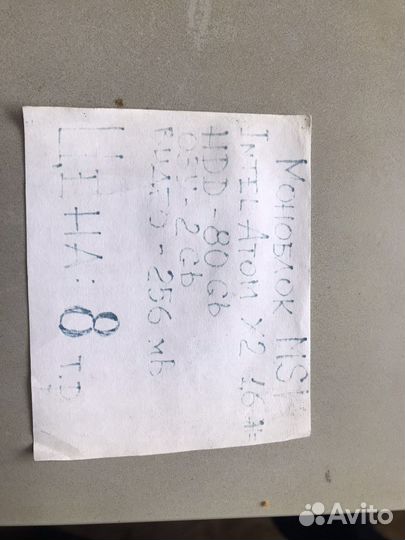 МОНОБЛОК MSI
INTEL ATOM X2 1,6 Г
HDD - 80 Gb
ОЗУ - 2 Gb
ВИДЕО - 256 мВ
ЦЕНА: 8 ТР
Avito